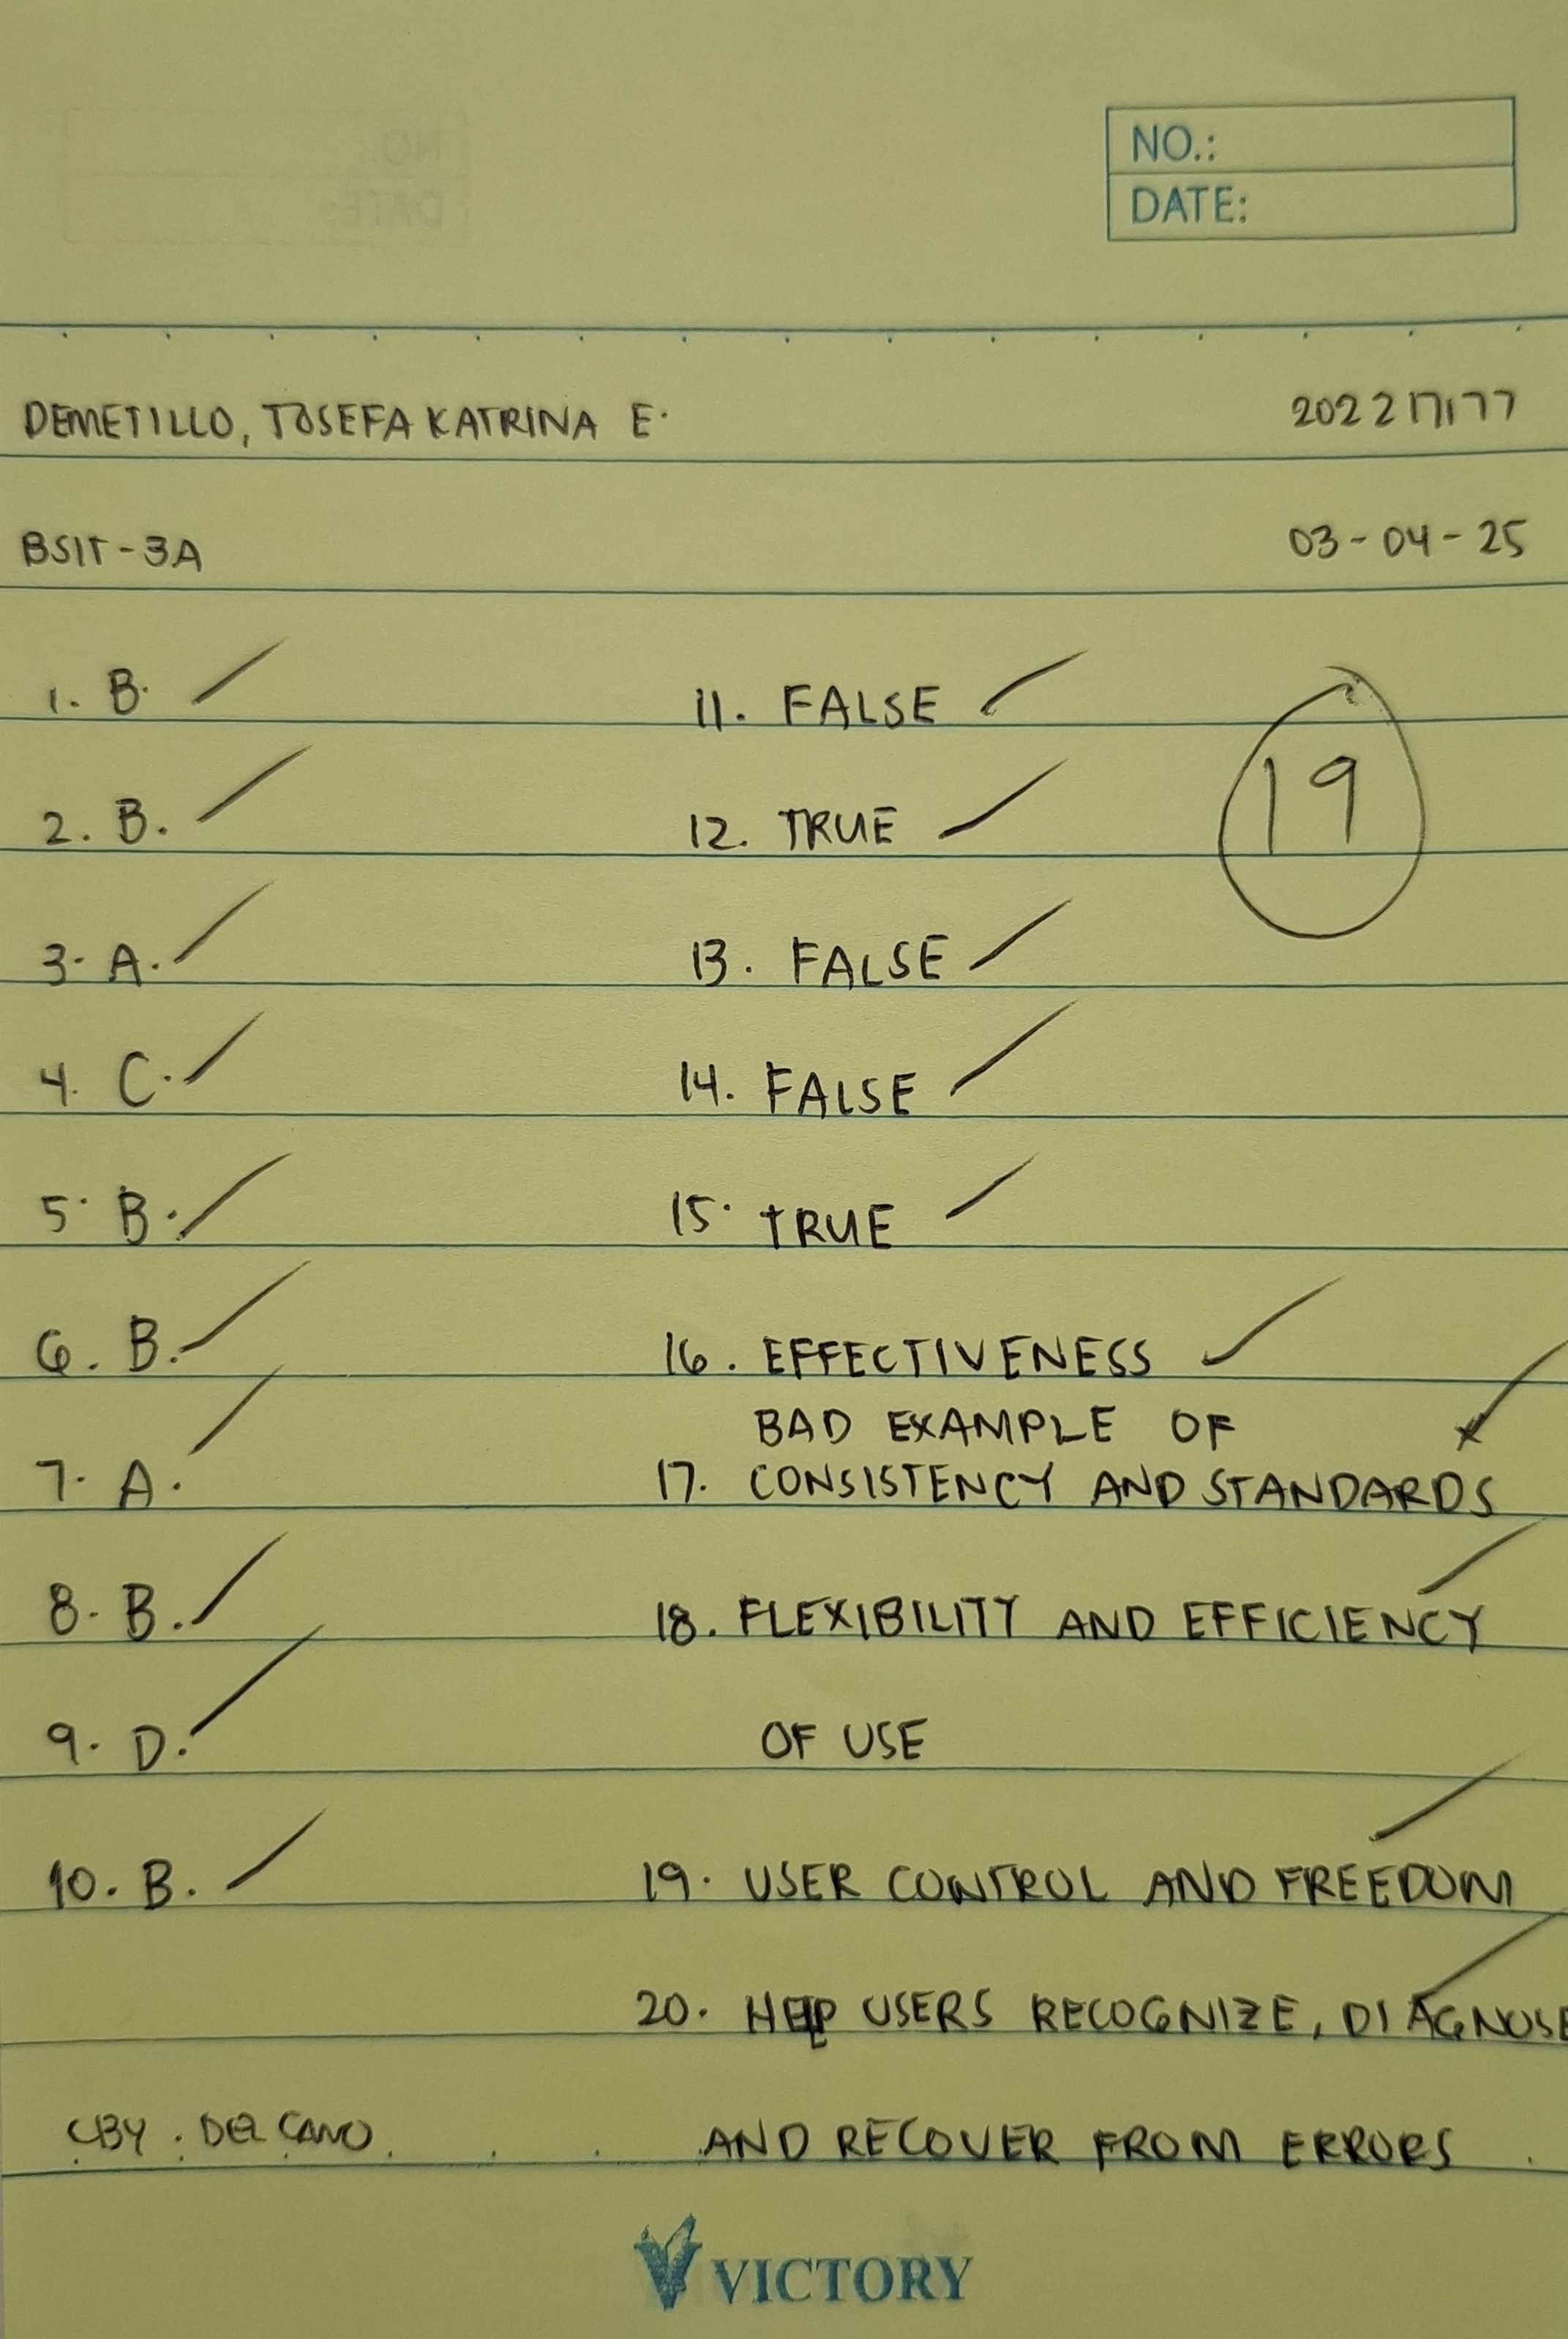 NO.:
DATE:
DEMETILLO, JOSEFA KATRINA E. 202217177
BSIT-3A 03-04-25
1. B.
2. B.
3. A.
4. C.
5. B.
6. B.
7. A.
8. B.
9. D.
10. B.
CBY: DEL CANO
11. FALSE
12. TRUE
13. FALSE
14. FALSE
15. TRUE
16. EFFECTIVENESS
BAD EXAMPLE OF
17. CONSISTENCY AND STANDARDS
18. FLEXIBILITY AND EFFICIENCY
OF USE
19. USER CONTROL AND FREEDOM
20. HELP USERS RECOGNIZE, DIAGNOSE
AND RECOVER FROM ERRORS
19
VICTORY